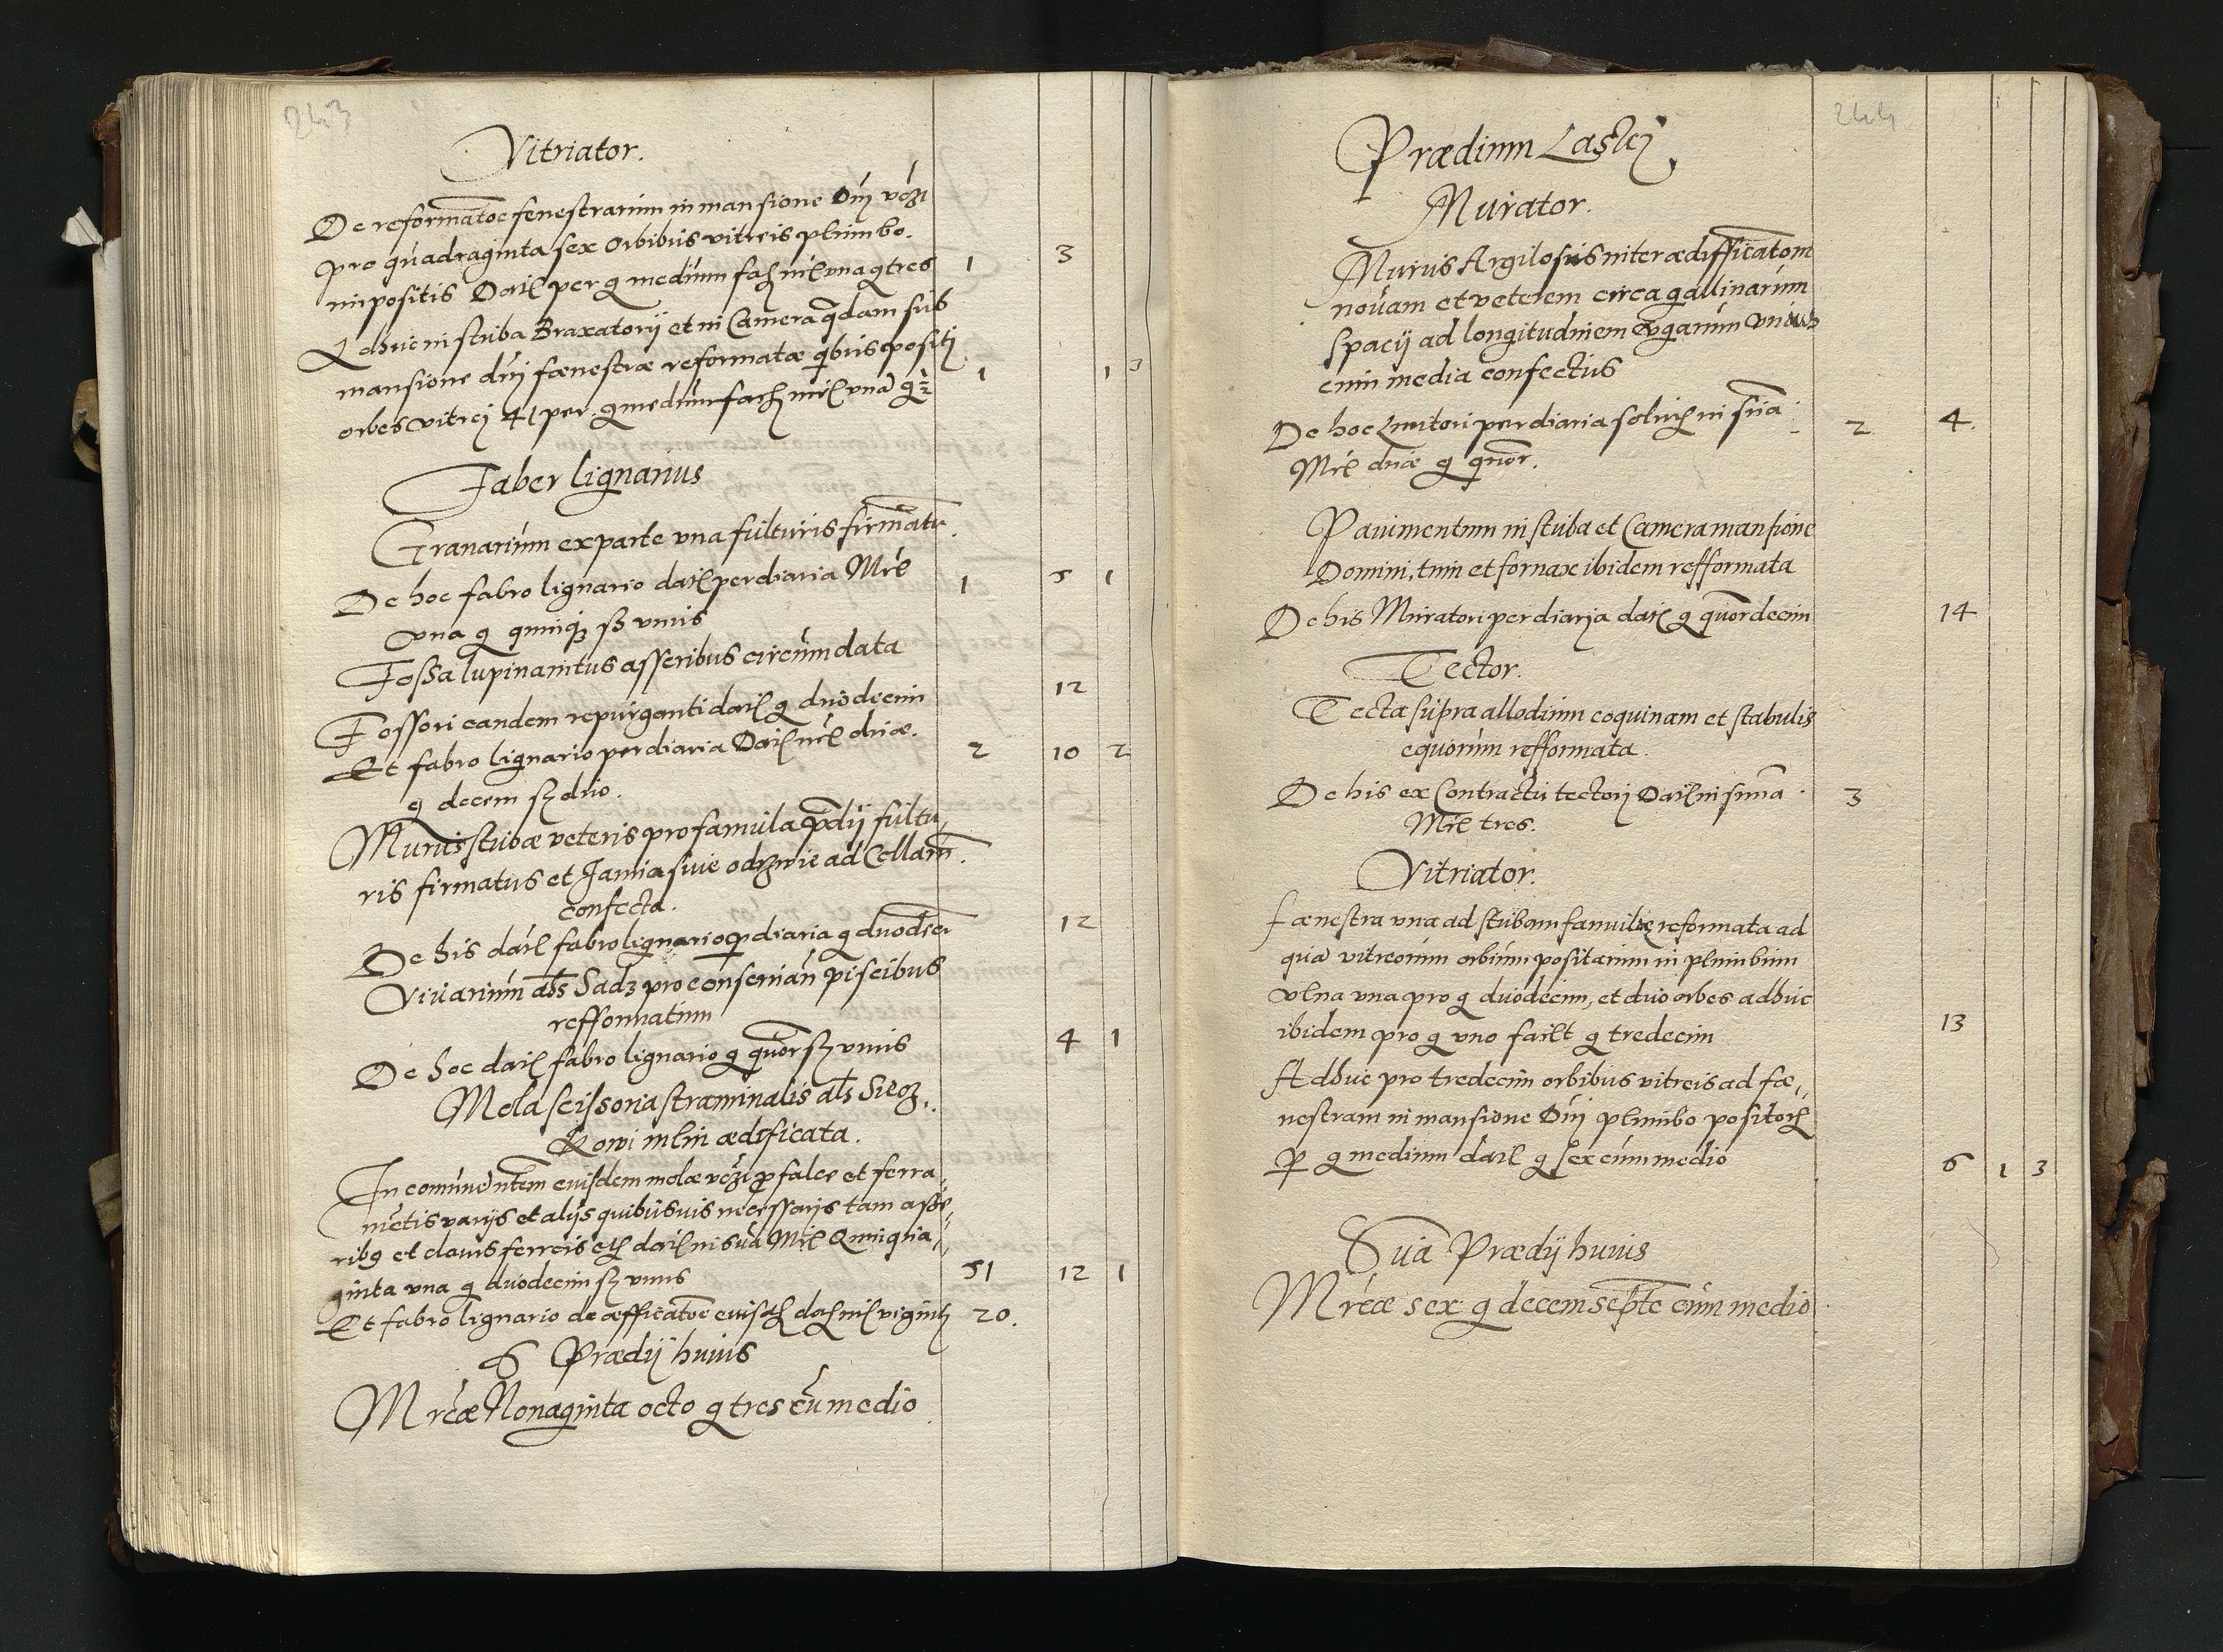 243
Vitriator.
De reformatoe fenestrarum in mansione Dni
pro quadraginta sex orbibus vitreis plumbo.
impositis Datl per g medium fac mrl una g tres 1 3
Adhuc in stuba Braxatorij et in Camera qdam sub
mansione dni fœnestræ reformatæ qbus positi
orbes vitrej 41 per. g medium fac mrl una g 1 1 3
Faber lignarius
Granarium ex parte una fulturis firmatu.
De hoc fabro lignario datl per diaria Mrl 1 5 1
una g quinq sz unus
Fossa lupina intus asseribus circumdata
Fossori eandem repurganti datl g duodecim 12
Et fabro lignario per diaria Datl mrl duæ. 2 10 2
g decem sz duo.
Murus stubæ veteris pro famula prdij fultu
ris firmatus et Janua sive odrzwie ad Cellam.
confecta.
De his datl fabro lignario p diaria g duodeci 12
Vivarium als Sadz pro conservan piscibus
refformatum
De hoc datl fabro lignario g quor sz unus 4 1
Mola scissoria straminalis als Siecz,
kowi mlin ædificata.
In comune ntem eiusdem molæ p falce et ferra
mentis varijs et alijs quibusvis necessarijs tam asse,
ribg et clavis ferreis etz datl in sua Mrl Quinqua,
ginta una g duodecim sz unus 51 12 1
Et fabro lignario de æfficatoe eiusdz datz mrl viginti 20.
S Prædij huius
Mrcæ Nonaginta octo g tres cu medio
244
Prædium Lasky
Murator.
Murus Argilosus inter ædifficatom
novam et veterem circa gallinarum
spacij ad longitudinem virgarum unius
cum media confectus
De hoc Lutori per diaria solutz in sua 2 4.
Mrl duæ g quor.
Pavimentum in stuba et Camera mansione
Domini, tum et fornax ibidem refformata
De his Muratori per diarja datl g quordecim 14
Tector.
Tecta supra allodium coquinam et stabulis
equorum refformata.
De his ex Contractu tectorj Datl in suma 3
Mrl tres.
Vitriator.
fænestra una ad stubam familiæ reformata ad
qua vitreorum orbium positarum in plumbum
ulna una pro g duodecim, et duo orbes adhuc
ibidem pro g uno facilt g tredecim 13
Adhuc pro tredecim orbibus vitreis ad fœ,
nestram in mansione Dni plumbo positorz
p g medium datl g sex cum medio 6 1 3
Sua Prædij huius
Mrcæ sex g decem septe cum medio